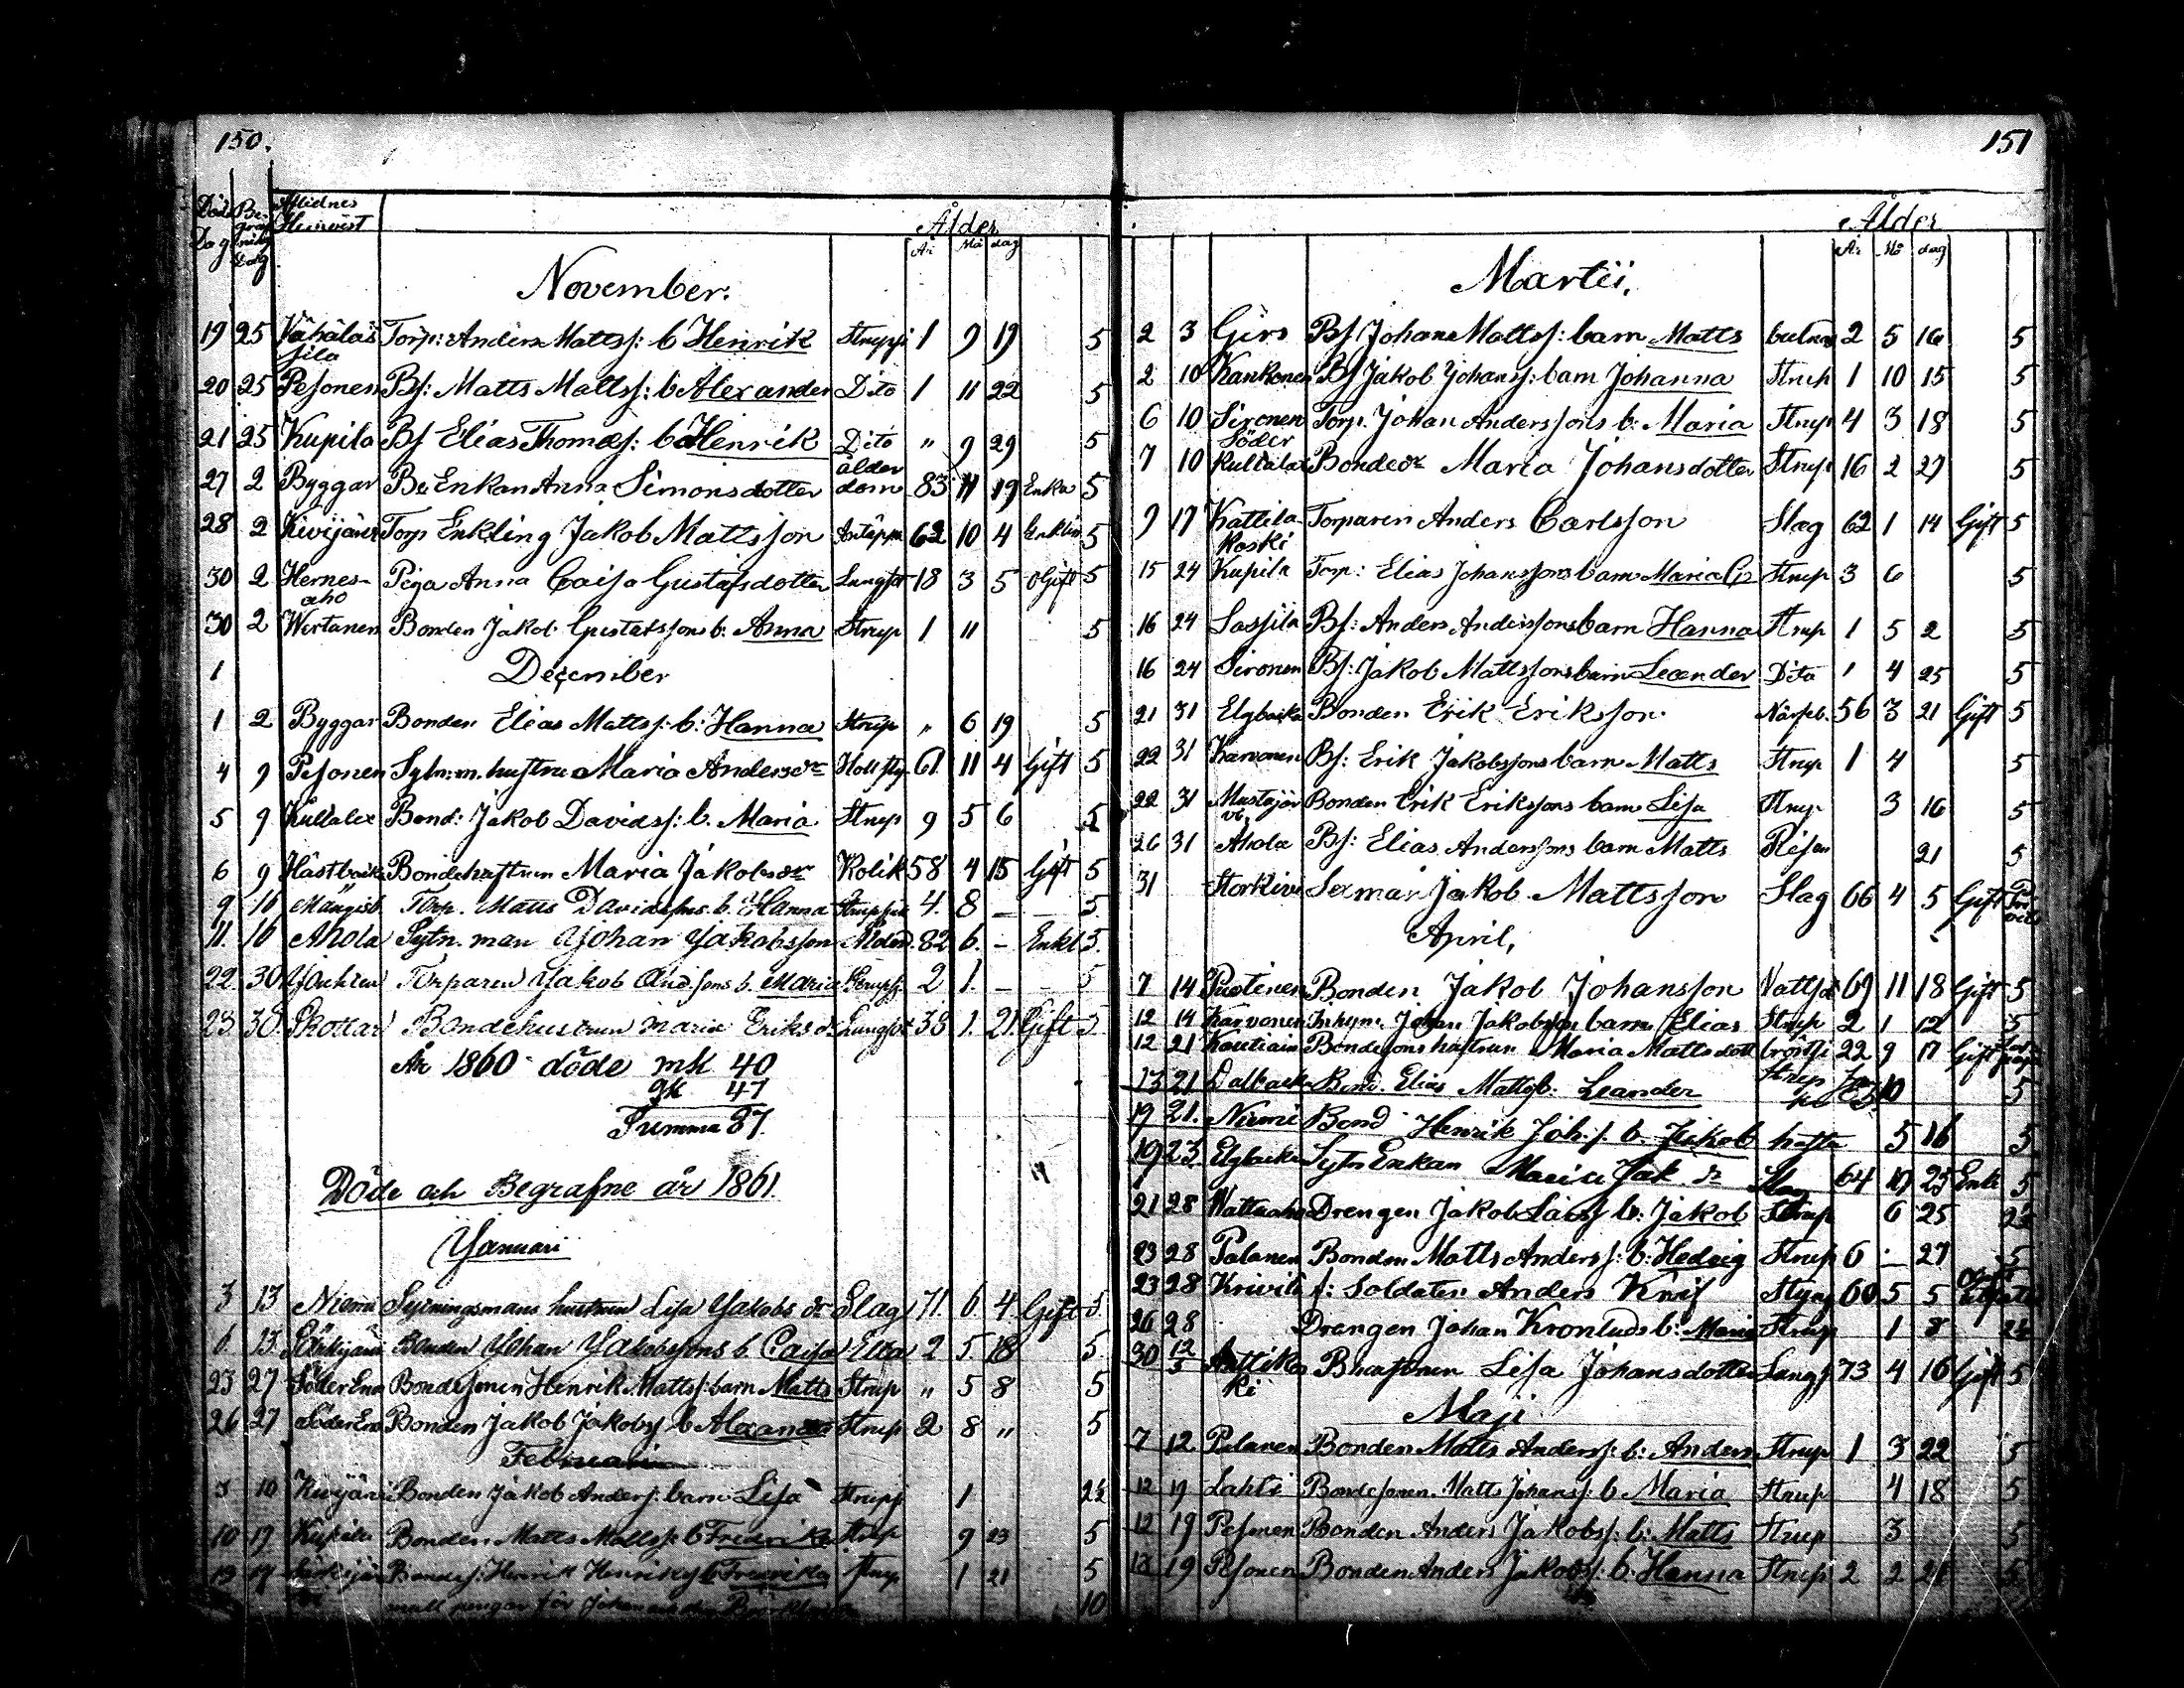 150.
Död Dag Begrafnings Dag Aflidnes Hemvist Ålder
År Må dag
November.
19 25 Kähäläsjila Torp: Anders Mattss: b Henrik Strupsj 1 9 19 5
20 25 Pesonen Bs: Matts Mattss: b Alexander Dito 1 11 22 5
21 25 Kupila Bs Elias Thomass: b Henrik Dito " 9 29 5
27 2 Byggar Be Enkan Anna Simonsdotter ålderdom 83 11 19 Enka 5
28 2 Kivijärvi Torp Enkling Jakob Mattsson 62 10 4 Enkling 5
30 2 Hernesaho Piga Anna Caisa Gustafsdotter Lungsot 18 3 5 Ogift 5
30 2 Wirtanen Bonden Jakob Gustafssons b. Anna Strup 1 11 5
1 December
1 2 Byggar Bonden Elias Mattss: b: Hanna Strup " 6 19 5
4 9 Pesonen Sytn: m. hustru Maria Andersdr Håll sty 61 11 4 Gift 5
5 9 Kultalax Bond: Jakob Davidss: b. Maria Strup 9 5 6 5
6 9 Hästbacka Bondehustrun Maria Jakobsdr Kolik 58 4 15 Gift 5
9 16 Torp. Matts Davidssons b. Hanna Strupsju 4. 8 – – 5
11. 16 Ahola Sytn. man Johan Jakobsson Ålderd. 82 6. – Enkl 5.
22. 30 Torparen Jakob And.sons b. Maria Strupsj. 2 1. – – 5
23. 30. Skottar Bondehustrun Maria Eriksdr Lungsot 38 1. 21. Gift 5
År 1860 döde mk 40
qk 47
Summa 87
Döde och Begrafne år 1861.
Januari
3 13 Niemi Sytningsmans hustrun Lisa Jakobsdr Slag 71. 6. 4. Gift 5.
6. 13. Bonden Johan Jakobssons b. Caisa Elta 2 5. 18 5.
23 27 Söder Ena Bondesonen Henrik Mattss: barn Matts Strup " 5 8 5
26 27 Söder Ena Bonden Jakob Jakobss b Alexander Strup 2 8 " 5
Februari
3 10 Kivijärvi Bonden Jakob Anders: barn Lisa Strupsj 1 2½
10 17 Kupila Bonden Matts Mattss: b Fredrika Strup 9 23 5
13 17 Bondes: Henrik Henrikss b Fredrika Strup 1 21 5
mall pengar för 10
151
Ålder
År Må dag
Martii.
2 3 Girs Bs Johan Mattss: barn Matts 2 5 16 5
2 10 Kankonen Bs Jakob Johanss: barn Johanna Strup 1 10 15 5
6 10 Sironen Torp. Johan Anderssons b: Maria Strup 4 3 18 5
7 10 Söder Kultalax Bondedr Maria Johansdotter Strup 16 2 27 5
9 17 Kattilakoski Torparen Anders Carlsson Slag 62 1 14 Gift 5
15 24 Kupila Torp: Elias Johanssons barn Maria Cs Strup 3 6 5
16 24 Sassila Bs: Anders Anderssons barn Hanna Strup 1 5 2 5
16 24 Sironen Bs: Jakob Mattssons barn Leander Dito 1 4 25 5
21 31 Elgbacka Bonden Erik Eriksson Närfeb. 56 3 21 Gift 5
22 31 Karvonen Bs: Erik Jakobssons barn Matts Strup 1 4 5
22 31 Mustajärvi Bonden Erik Erikssons barn Lisa Strup 3 16 5
26 31 Ahola Bs: Elias Anderssons barn Matts Risen 21 5
31 Storkivi Sexman Jakob Mattsson Slag 66 4 5 Gift
April,
7 14 Puotinen Bonden Jakob Johansson Vattsot 69 11 18 Gift 5
12 14 Karvonen Inhys: Johan Jakobssons barn Elias Strup 2 1 12 5
12 21 Kautiain Bondesons hustrun Maria Mattsdott bröstsj 22 9 17 Gift
13 21 Dalbacka Bond. Elias Mattss b. Leander Strup 10 5
19 21. Niemi Bond Henrik Joh: s. b. Jakob hosta 5 16 5
19 23 Elgbacka Sytn Enkan Maria Jak dr Slag 64 10 23 Enk 5
21 28 Drengen Jakob Larss b: Jakob Strup 6 25 2½
23 28 Palanen Bonden Matts Anderss: b: Hedvig Strup 6 – 27 5
23 28 f: Soldaten Anders Knif Styng 60 5 5
26 28 Drengen Johan Kronluds b: Maria Strup 1 8 2½
30 12/5 Anttikoski Bhustrun Lisa Johansdotter Lungs 73 4 16 Gift 5
Maji
7 12 Palanen Bonden Matts Anderss: b: Anders Strup 1 3 22 5
12 19 Lahti Bondesonen Matts Johanss: b Maria Strup 4 18 5
12 19 Pesonen Bonden Anders Jakobss: b: Matts Strup 3 5
13 19 Pesonen Bonden Anders Jakobss: b. Hanna Strup 2 2 21 5